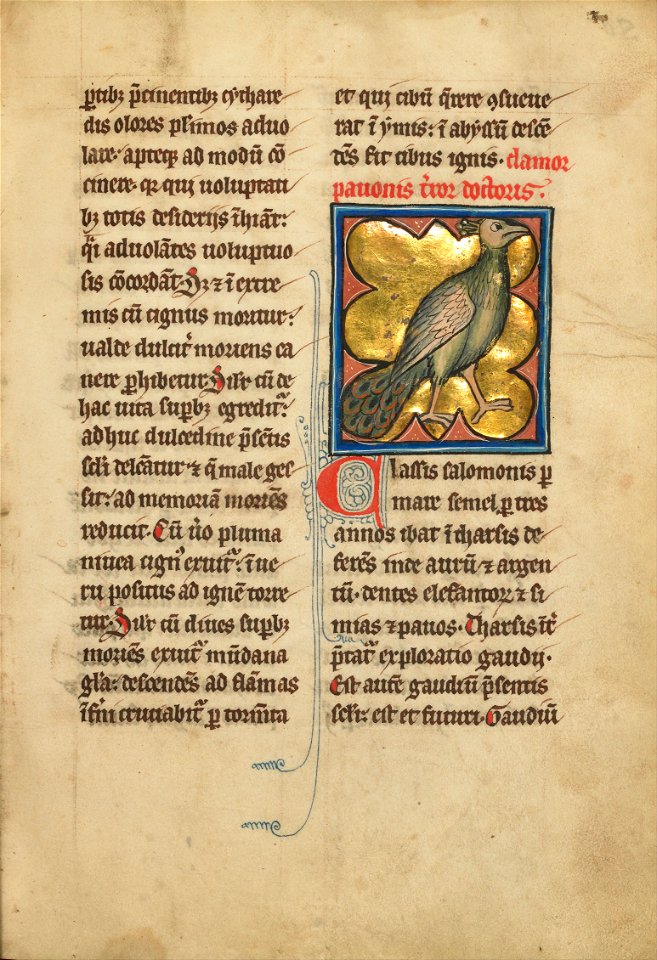 ꝑtibꝫ p̃cinentibꝫ cythare
dis olores pl'imos aduo
lare· apteqꝫ ad modū cō
cinere· qꝛ qui uoluptati
bꝫ totis desiderijs īhiāt:
q̄i aduolātes uoluptuo
sis cōcordāt· Dꝛ ⁊ ī extre
mis cū cignus moritur:
ualde dulcit᷑ moriens ca
nere ꝑhibetur· Silr̄ cū de
hac uita suꝑbꝫ egredit᷑:
adhuc dulcedine p̃sētis
scl̄i delcātur ⁊ q̄ male ges
sit: ad memoriā moriēs
reducit· Cū ůo pluma
niuea cignꝰ exuit᷑: ī ue
ru positus ad ignē torre
tur· Silr̄ cū diues suꝑbꝫ
moriēs exuit᷑ mūdana
gl̄a: descendēs ad flāmas
īfr̄ni cruciabit᷑ ꝑ tormēta
et qui cibū q̄rere ꝯsueue
rat ī ymis: ī abyssū descē
dēs fit cibus ignis· clamor
pauonis t̄ror doctoris·
Classis salomonis ꝑ
mare semel ꝑ tres
annos ibat ī tharsis de
ferēs inde aurū ⁊ argen
tū· dentes elefantoꝝ ⁊ si
mias ⁊ pauos· Tharsis īt᷑
p̄tat᷑ exploratio gaudij·
Est autē gaudiū p̃sentis
scl̄i: est et futuri· Gaudiū